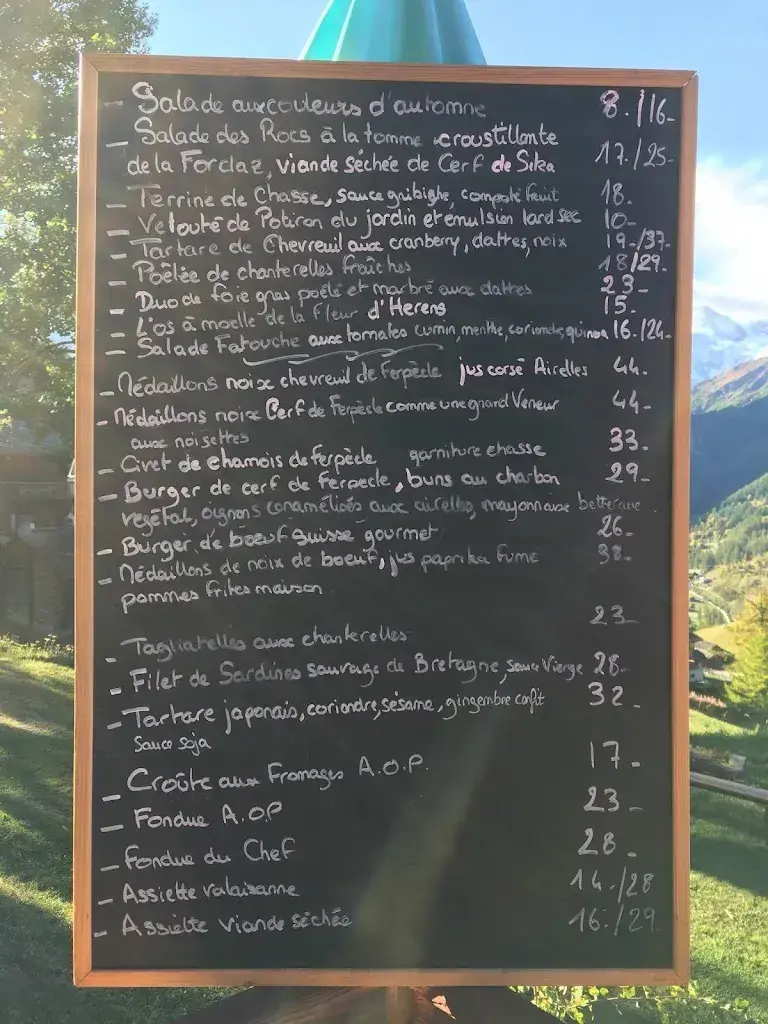 - Salade aux couleurs d'automne 8./16-
- Salade des Rocs à la tomme croustillante
de la Forclaz, viande séchée de Cerf de Sika 17./25-
- Terrine de Chasse, sauce gribighe, compoté fruit 18.
- Velouté de Potiron du jardin et émulsion lard sec 10-
- Tartare de Chevreuil aux cranberry, dattes, noix 19-/37-
- Poêlée de chanterelles fraîches 18/29-
- Duo de foie gras poêlé et marbré aux dattes 23-
- L'os à moelle de la Fleur d'Herens 15.
- Salade Fatouche aux tomates cumin, menthe, coriandre, quinoa 16./24-
- Médaillons noix chevreuil de Ferpècle jus corsé Airelles 44-
- Médaillons noix Cerf de Ferpècle comme une grand Veneur 44-
aux noisettes
- Civet de chamois de Ferpècle garniture chasse 33-
- Burger de cerf de Ferpecle, buns au charbon 29-
végétal, oignons caramélisés aux airelles, mayonnaise betterave
- Burger de boeuf suisse gourmet 26-
- Médaillons de noix de boeuf, jus paprika fumé 38-
pommes frites maison
- Tagliatelles aux chanterelles 23-
- Filet de Sardines sauvage de Bretagne, sauce Vierge 28-
- Tartare japonais, coriandre, sésame, gingembre confit 32-
Sauce soja
- Croûte aux Fromages A.O.P. 17-
- Fondue A.O.P 23-
- Fondue du Chef 28-
- Assiette valaisanne 14-/28
- Assiette viande séchée 16./29